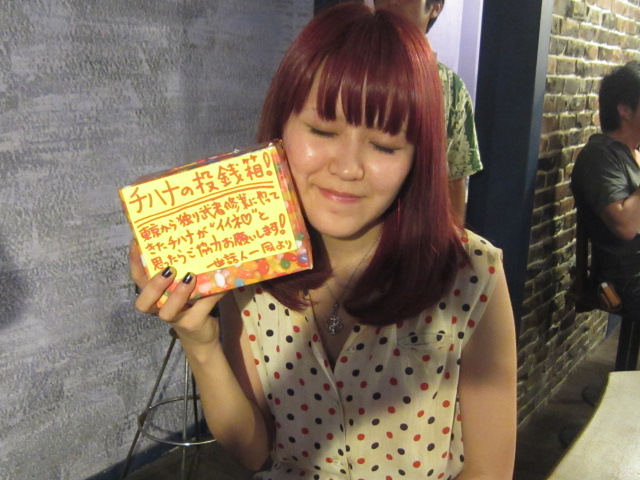 チハナの投銭箱!
東京から独り武者修業に出て
きたチハナが"イイネ♡"と
思たらご協力お願いします!
世話人一同より